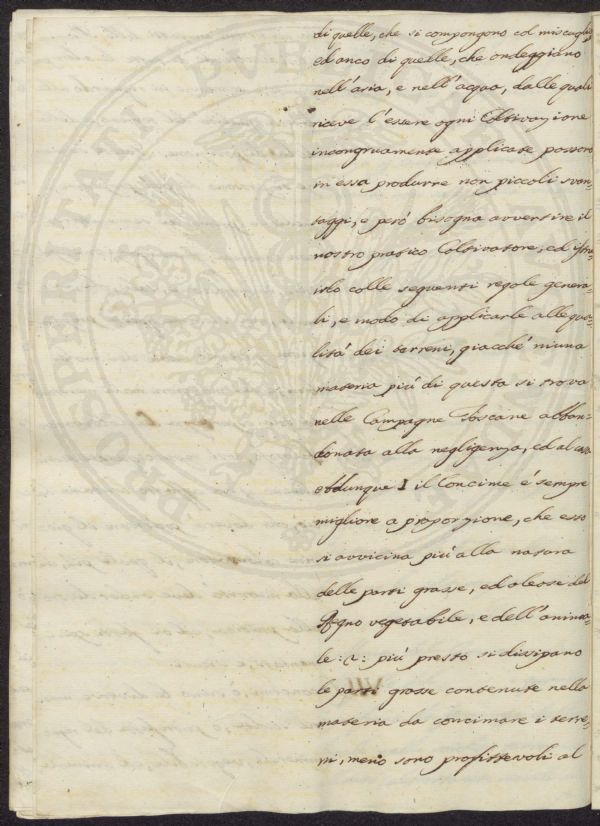 di quelle, che si compongono col miscuglio
ed anco di quelle, che ondeggiano
nell'aria, e nell'acqua, dalle quali
riceve l'essere ogni Coltivazione
incongruamente applicate possono
in essa produrre non piccoli svan-
taggi, e però bisogna avvertire il
nostro pratico Coltivatore, ed istru-
irlo colle seguenti regole genera-
li, e modo di applicarle alle qua-
lità dei terreni, giacché niuna
materia più di questa si trova
nelle Campagne Toscane abban-
donata alla negligenza, ed al caso
Addunque 1 il Concime è sempre
migliore a proporzione, che esso
si avvicina più alla natura
delle parti grasse, ed oleose del
Regno vegetabile, e dell'anima-
le: 2: più presto si dissipano
le parti grasse contenute nella
materia da concimare i terre-
ni, meno sono profittevoli al
PROSPERITATI PUBLICAE